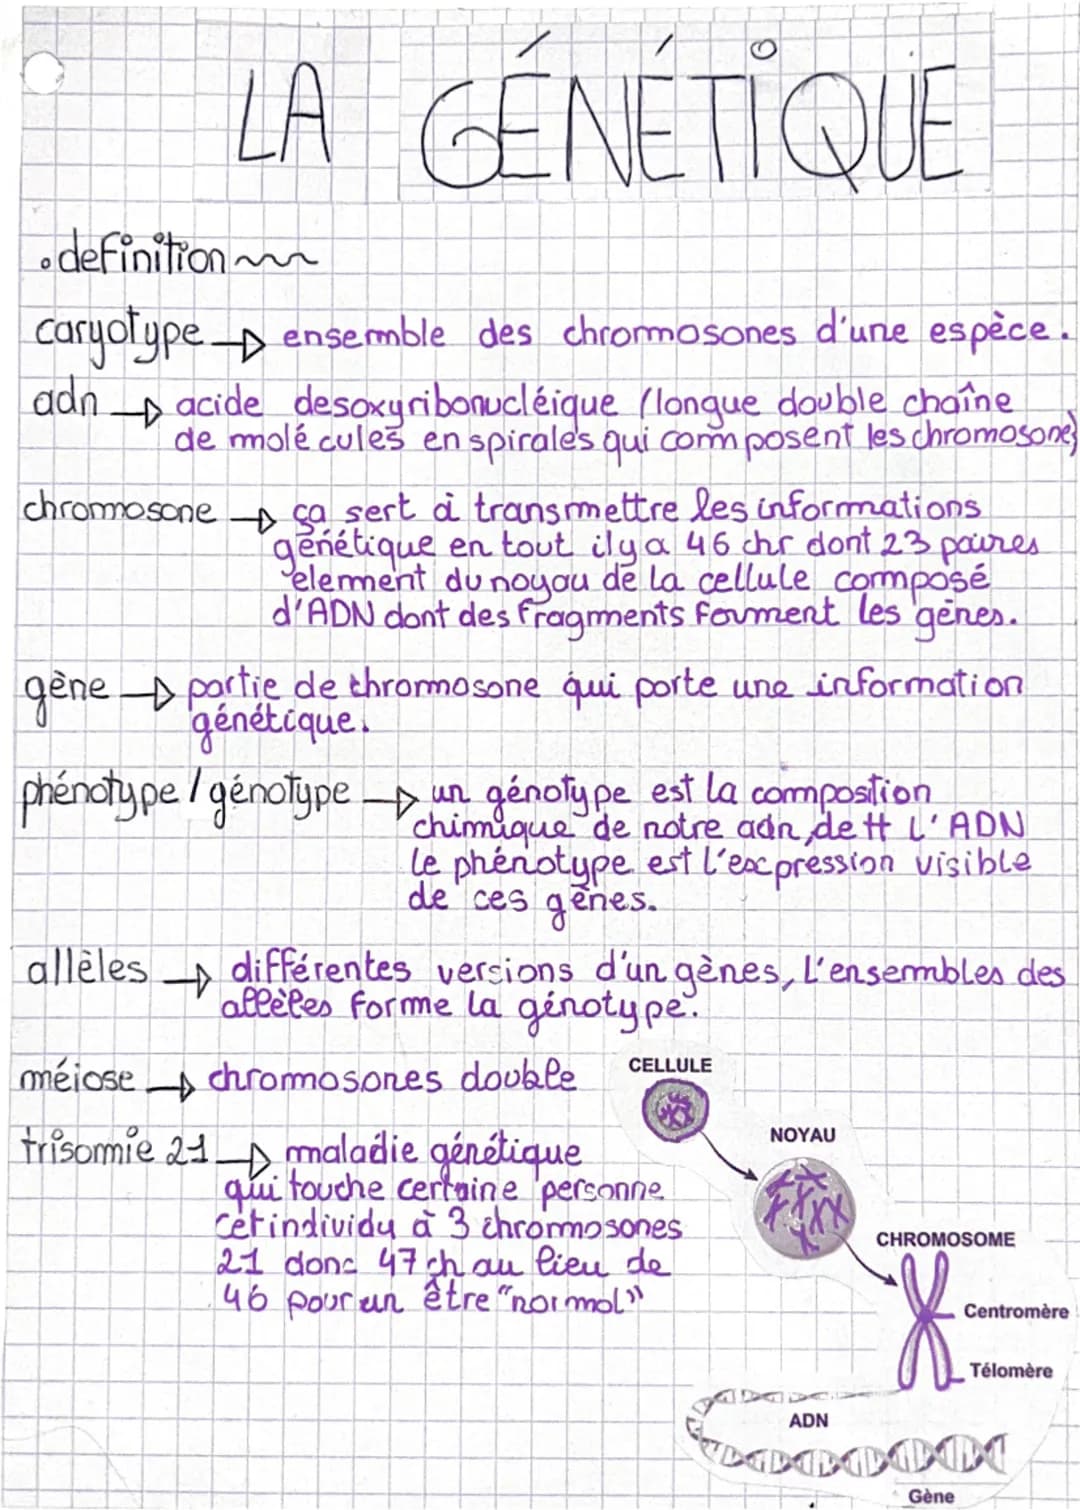 LA GÉNÉTIQUE
. definition
caryotype → ensemble des chromosones d'une espèce.
adn → acide desoxyribonucléique (longue double chaîne
de molécules en spirales qui composent les chromosones)
chromosone → ça sert à transmettre les informations
génétique en tout il y a 46 chr dont 23 paires
élement du noyau de la cellule composé
d'ADN dont des fragments forment les gènes.
gène → partie de chromosone qui porte une information
génétique.
phénotype / génotype → un génotype est la composition
chimique de notre adn, de tt L'ADN
Le phénotype est l'expression visible
de ces gènes.
allèles → différentes versions d'un gènes, L'ensembles des
allèles forme la génotype.
méiose → chromosones double
CELLULE
trisomie 21 → maladie génétique
NOYAU
qui touche certaine personne
cet individu à 3 chromosones
CHROMOSOME
21 donc 47 ch au lieu de
46 pour un être "normal"
Centromère
Télomère
ADN
Gène